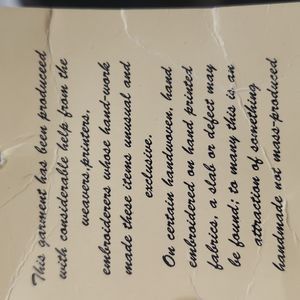 This garment has been produced
with considerable help from the
weavers, printers,
embroiderers whose hand-work
made these items unusual and
exclusive.
On certain handwoven, hand
embroidered on hand printed
fabrics, a slab or defect may
be found; to many this is an
attraction of something
handmade not mass-produced